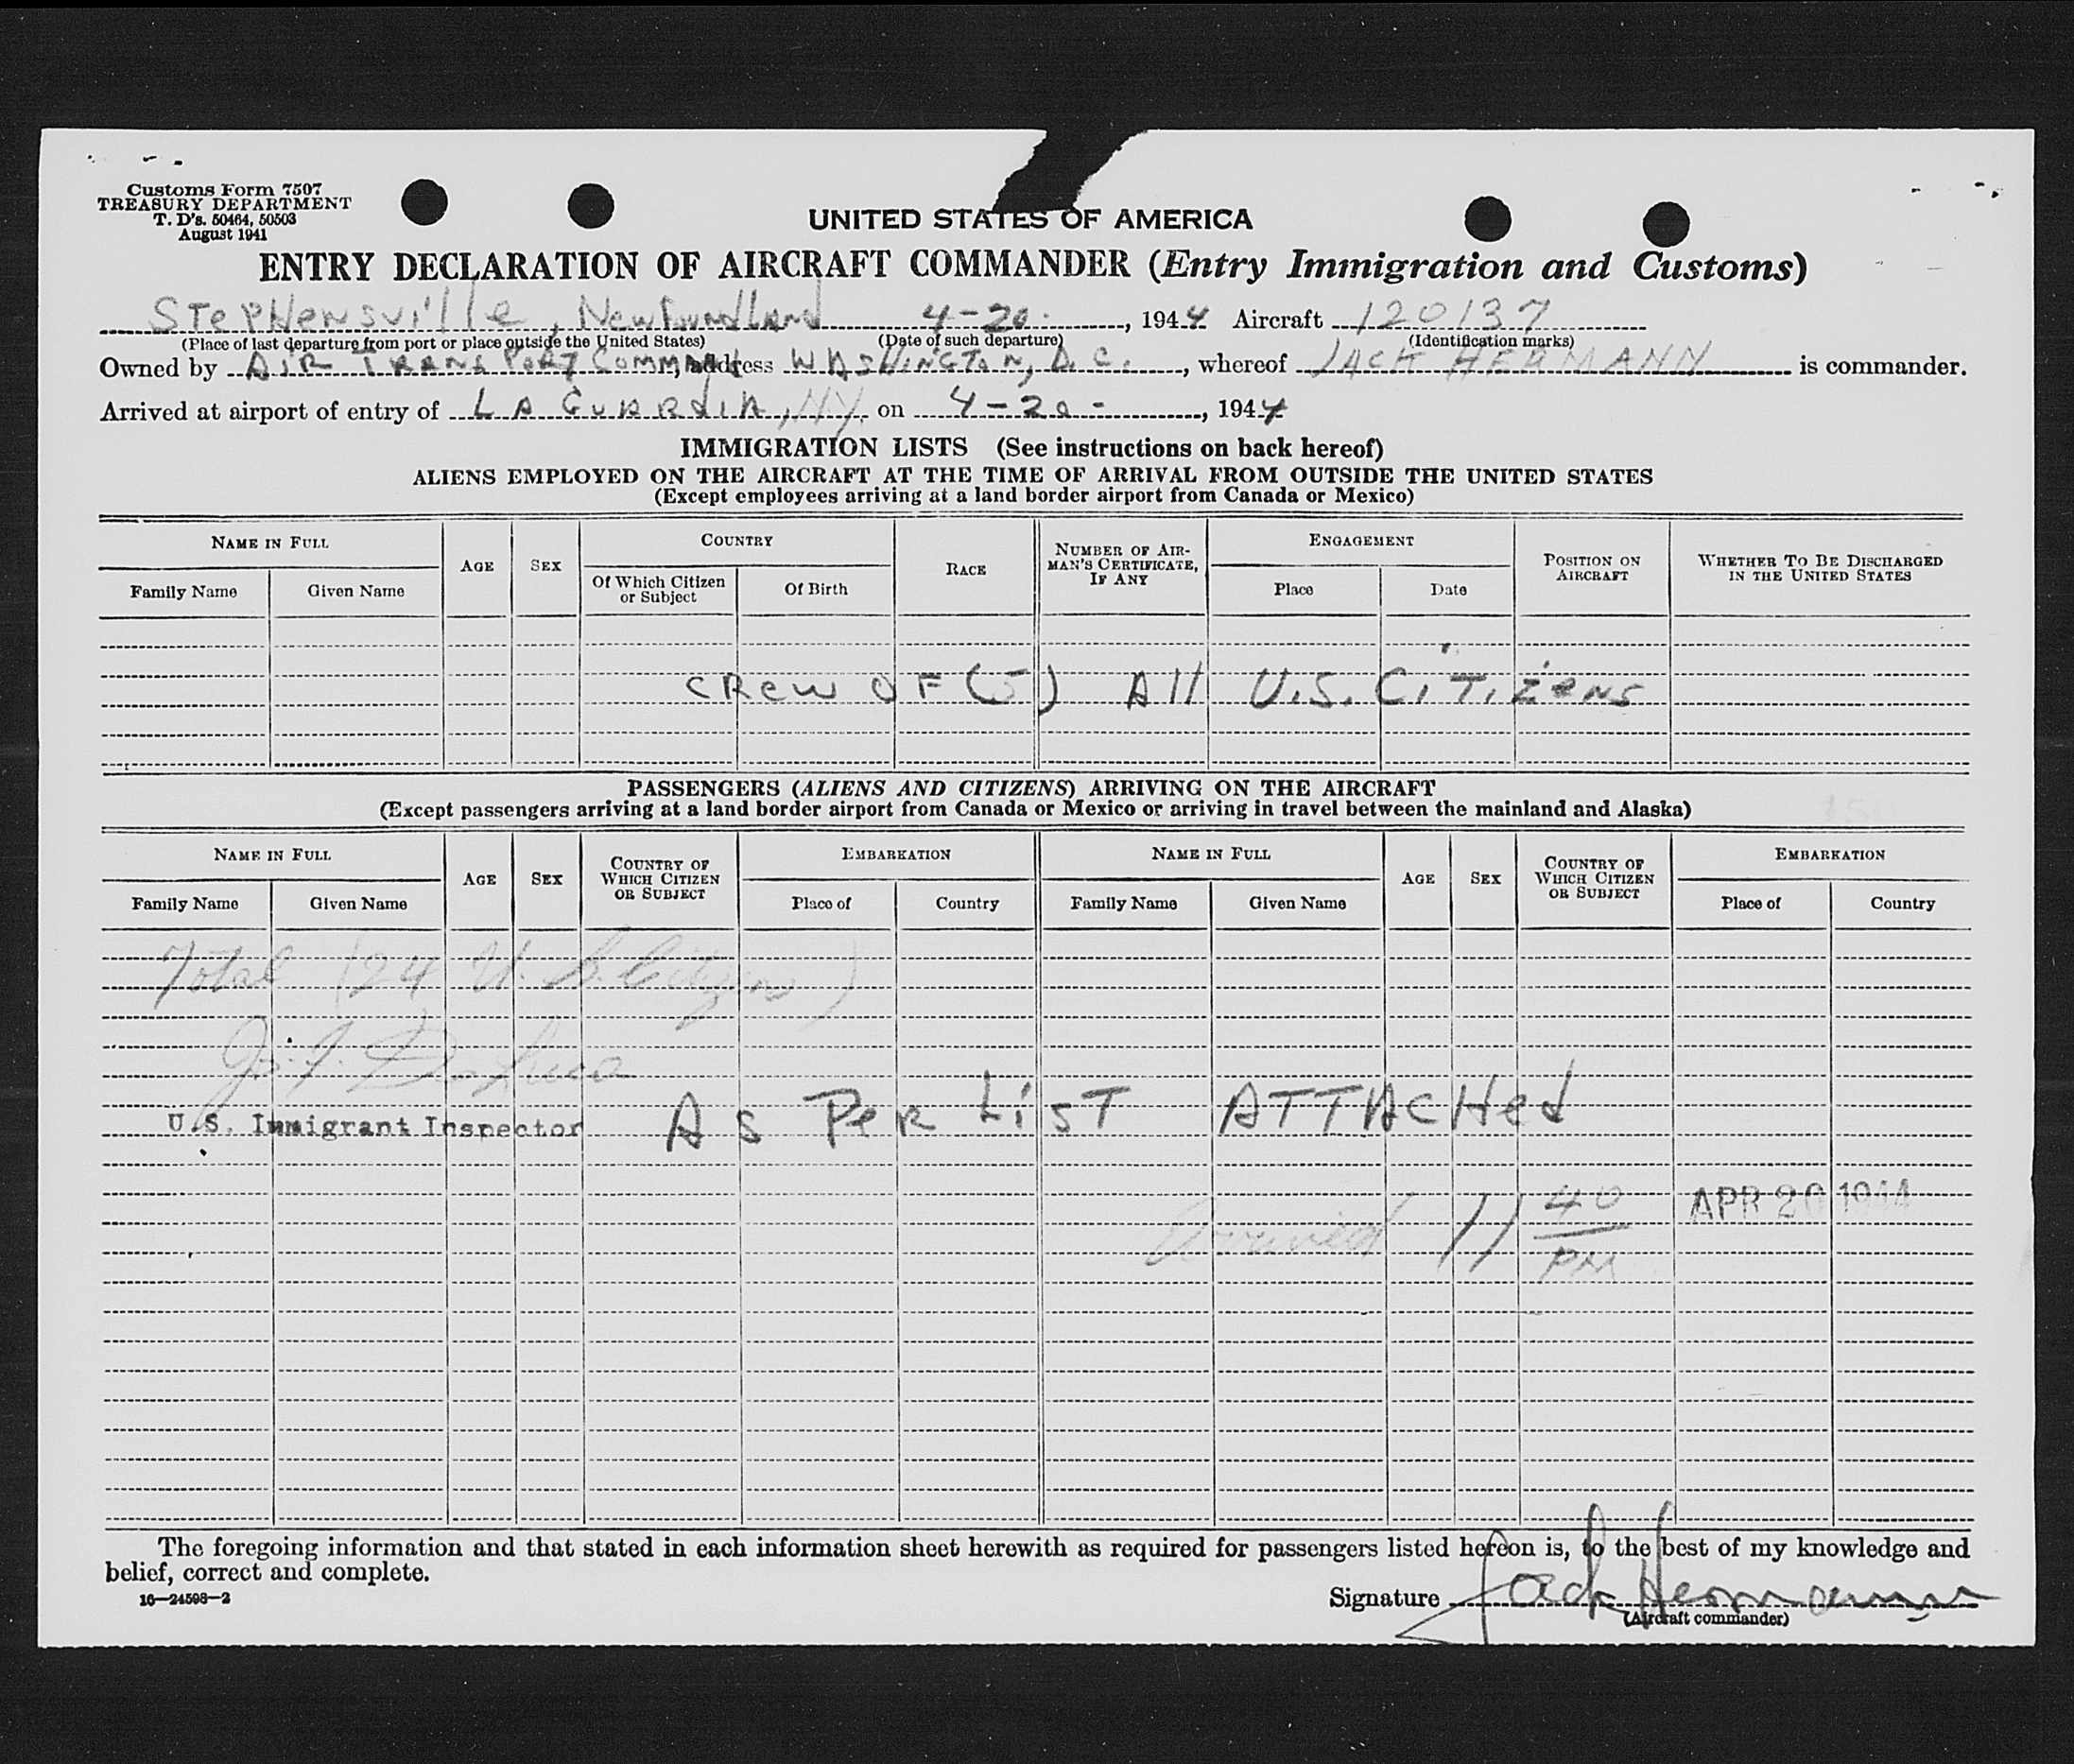 Customs Form 7507
TREASURY DEPARTMENT
T. D's. 50464, 50503
August 1941
UNITED STATES OF AMERICA
ENTRY DECLARATION OF AIRCRAFT COMMANDER (Entry Immigration and Customs)
StepHensville, Newfoundland 4-20-, 1944 Aircraft 120137
(Place of last departure from port or place outside the United States) (Date of such departure) (Identification marks)
Owned by Air Transport Command, address Washington, D.C., whereof JACK HERMANN is commander.
Arrived at airport of entry of La Guardia, N.Y. on 4-20-, 1944
IMMIGRATION LISTS (See instructions on back hereof)
ALIENS EMPLOYED ON THE AIRCRAFT AT THE TIME OF ARRIVAL FROM OUTSIDE THE UNITED STATES
(Except employees arriving at a land border airport from Canada or Mexico)
NAME IN FULL AGE SEX COUNTRY RACE NUMBER OF AIRMAN'S CERTIFICATE, IF ANY ENGAGEMENT POSITION ON AIRCRAFT WHETHER TO BE DISCHARGED IN THE UNITED STATES
Family Name Given Name Of Which Citizen or Subject Of Birth Place Date
CRew OF (5) All U.S. CiTizens
PASSENGERS (ALIENS AND CITIZENS) ARRIVING ON THE AIRCRAFT
(Except passengers arriving at a land border airport from Canada or Mexico or arriving in travel between the mainland and Alaska)
NAME IN FULL AGE SEX COUNTRY OF WHICH CITIZEN OR SUBJECT EMBARKATION NAME IN FULL AGE SEX COUNTRY OF WHICH CITIZEN OR SUBJECT EMBARKATION
Family Name Given Name Place of Country Family Name Given Name Place of Country
Total (24 U.S. Citizens)
U.S. Immigrant Inspector
As Per List ATTAcHed
APR 20 1944
Arrived 11 40 PM
The foregoing information and that stated in each information sheet herewith as required for passengers listed hereon is, to the best of my knowledge and
belief, correct and complete.
16—24598-2
Signature Jack Hermann
(Aircraft commander)